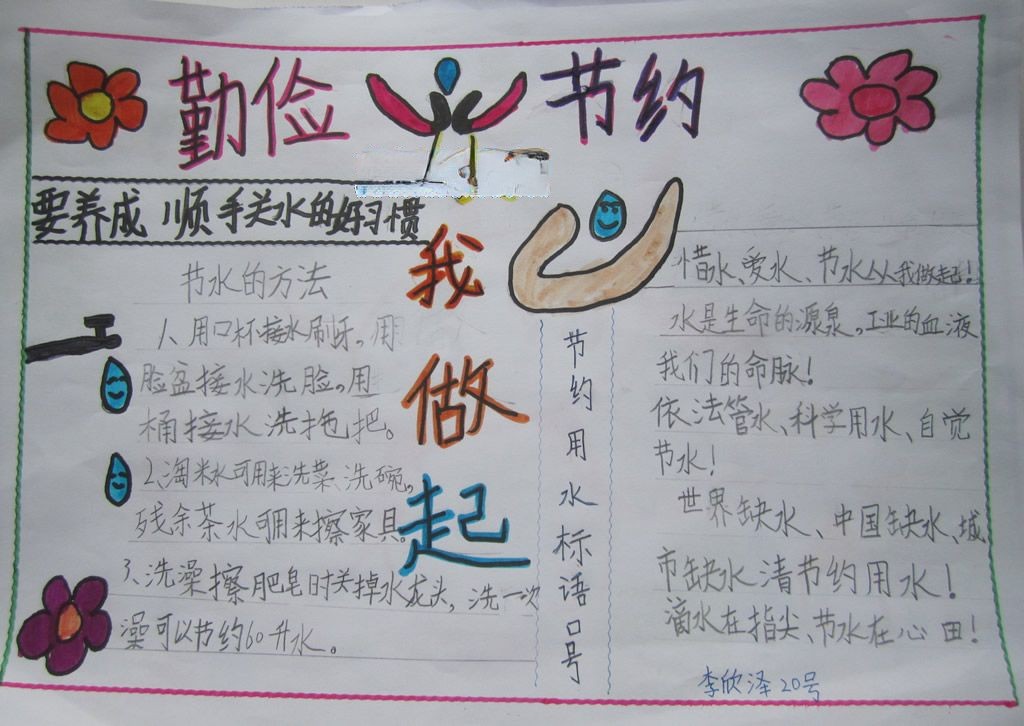 勤俭 节约
要养成 顺手关水的好习惯
我做起
节水的方法
1、用口杯接水刷牙,用
脸盆接水洗脸,用
桶接水洗拖把。
2、淘米水可用来洗菜、洗碗,
残余茶水可用来擦家具。
3、洗澡擦肥皂时关掉水龙头,洗一次
澡可以节约60升水。
节约用水标语口号
惜水、爱水、节水从从我做起!
水是生命的源泉,工业的血液
我们的命脉!
依法管水、科学用水、自觉
节水!
世界缺水、中国缺水、城
市缺水清节约用水!
滴水在指尖、节水在心田!
李欣泽20号